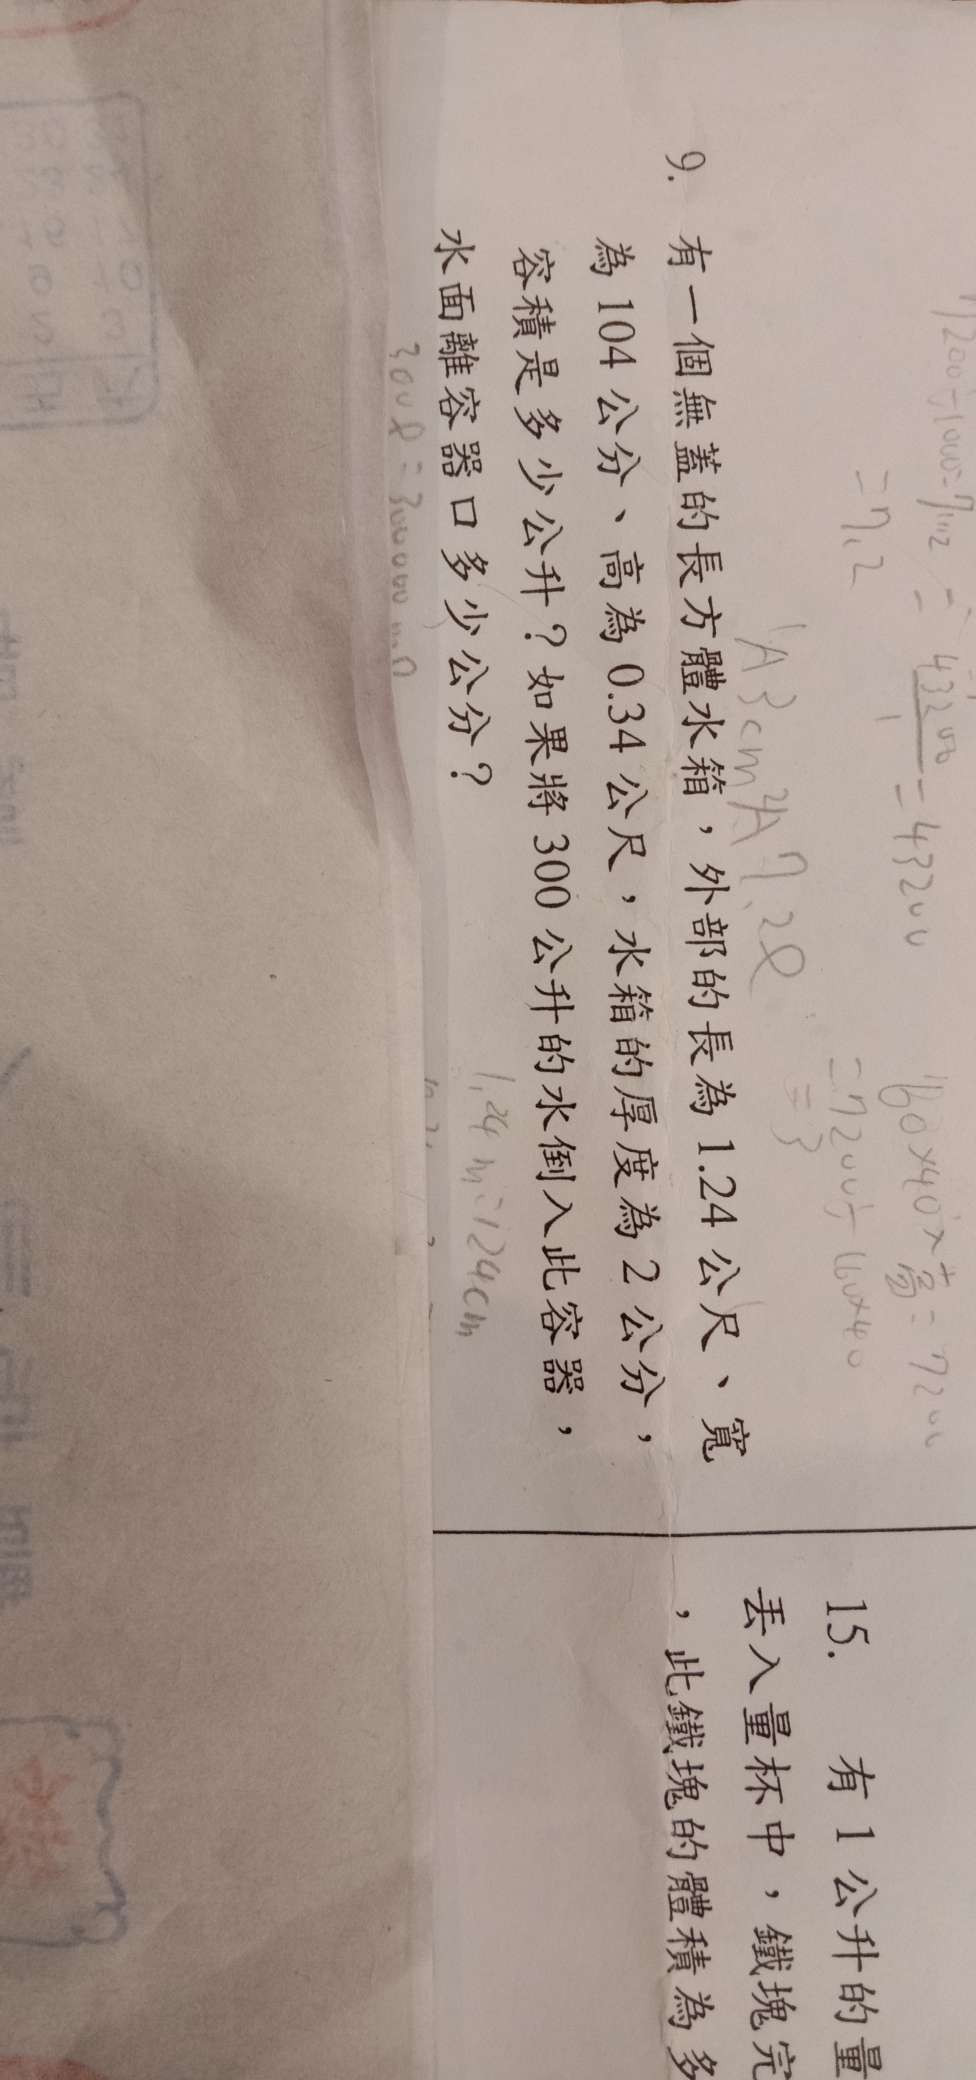 7200÷1000=7.2
=7.2
= 43200 = 43200
1
160×40×高=7200
=7200÷160×40
=3
A 3cm A 7.2ℓ
9. 有一個無蓋的長方體水箱，外部的長為 1.24 公尺、寬
為 104 公分、高為 0.34 公尺，水箱的厚度為 2 公分，
容積是多少公升？如果將 300 公升的水倒入此容器，
水面離容器口多少公分？
1.24m=124cm
300ℓ=300000ml
15. 有 1 公升的量
丟入量杯中，鐵塊完
，此鐵塊的體積為多